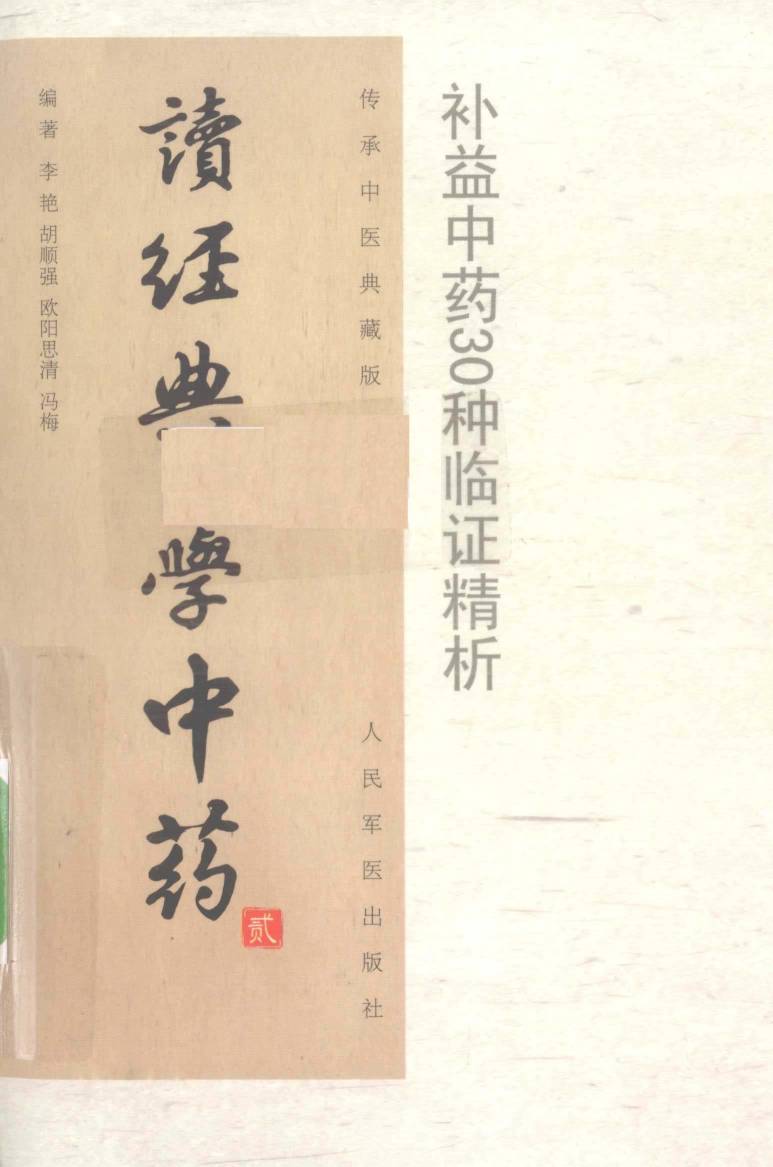 补益中药30种临证精析
传承中医典藏版
人民军医出版社
讀经典學中药
贰
编著 李艳 胡顺强 欧阳思清 冯梅